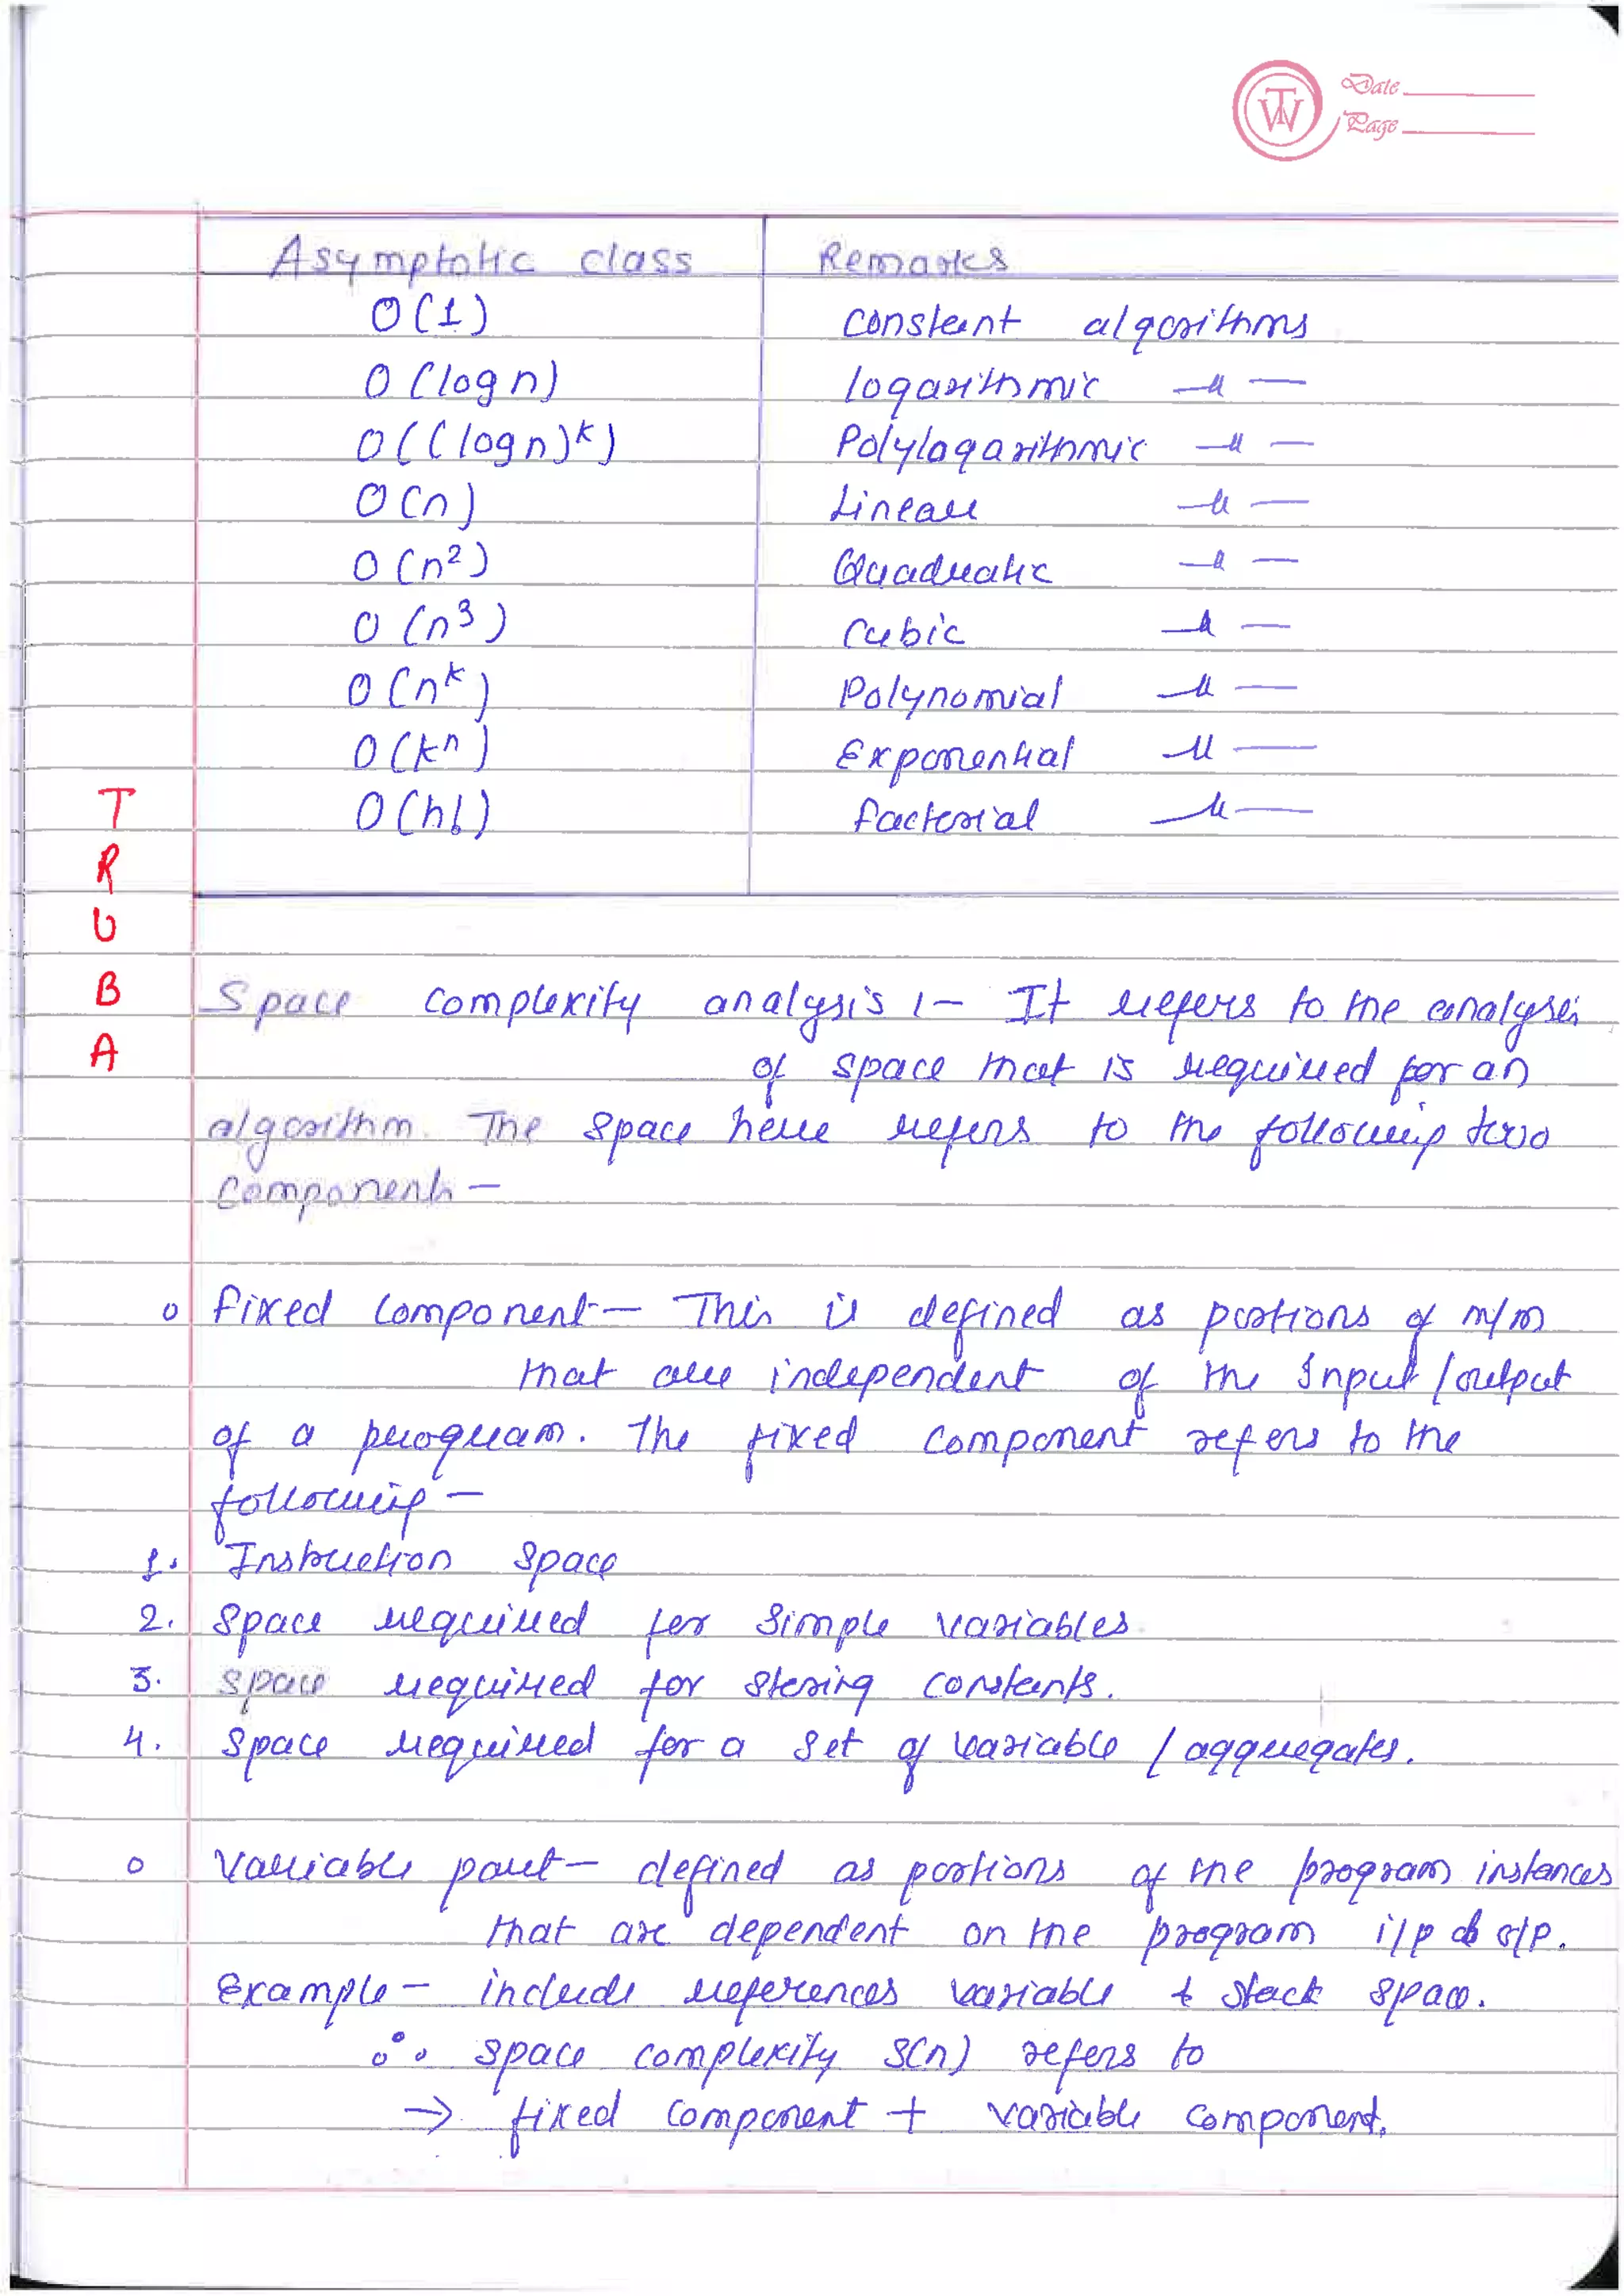 Date
Page
TW
Asymptotic class Remarks
O(1) Constant algorithms
O(log n) logarithmic —"—
O((log n)^k) Polylogarithmic —"—
O(n) Linear —"—
O(n²) Quadratic —"—
O(n³) Cubic —"—
O(n^k) Polynomial —"—
O(k^n) Exponential —"—
O(n!) factorial —"—
T
R
U
B
A
Space complexity analysis :- It refers to the analysis
of space that is required for an
algorithm. The space here refers to the following two
Components -
o fixed component — This is defined as portions of m/m
that are independent of the Input /output
of a program. The fixed Component refers to the
following —
1. Instruction Space
2. Space required for Simple variables
3. Space required for storing Constants.
4. Space required for a Set of variable / aggregates.
o Variable part — defined as portions of the program instances
that are dependent on the program i/p & o/p.
Example - include references variable & stack space.
∴ space complexity S(n) refers to
→ fixed component + variable component.